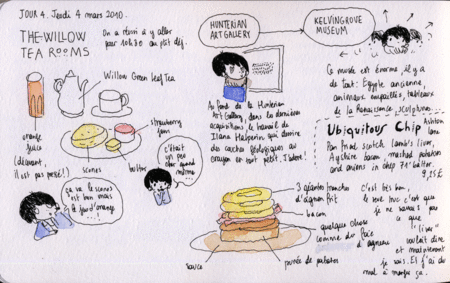 JOUR 4. Jeudi 4 mars 2010.
THE WILLOW
TEA ROOMS
On a réussi à y aller
pour 10h30 au ptit déj.
Willow Green Leaf Tea
orange
juice
(décevant,
il est pas pressé!)
scones
butter
strawberry
jam
ça va le scones
est bon mais
le jus d'orange
...!
c'était
un peu
cher quand
même...
HUNTERIAN
ART GALLERY
Au fond de la Hunterian
Art Gallery, dans les dernières
acquisitions, le travail de
Ilana Halperin qui dessine
des roches géologiques au
crayon en tout petit. J'adore!
KELVINGROVE
MUSEUM
Ce musée est énorme, il y a
de tout: Egypte ancienne,
animaux empaillés, tableaux
de la Renaissance, sculptures...
Ubiquitous Chip
Ashton
Lane
Pan fried scotch lamb's liver,
Ayrshire bacon, mashed potatoes
and onions in chip 71© batter.
9,25£
3 géantes tranches
d'oignon frit
bacon
quelque chose
comme du foie
d'agneau
purée de patates
sauce
C'est très bon,
le seul truc c'est que
je ne savais pas
ce que
"liver"
voulait dire
et maintenant
je sais. Et j'ai du
mal à manger ça.